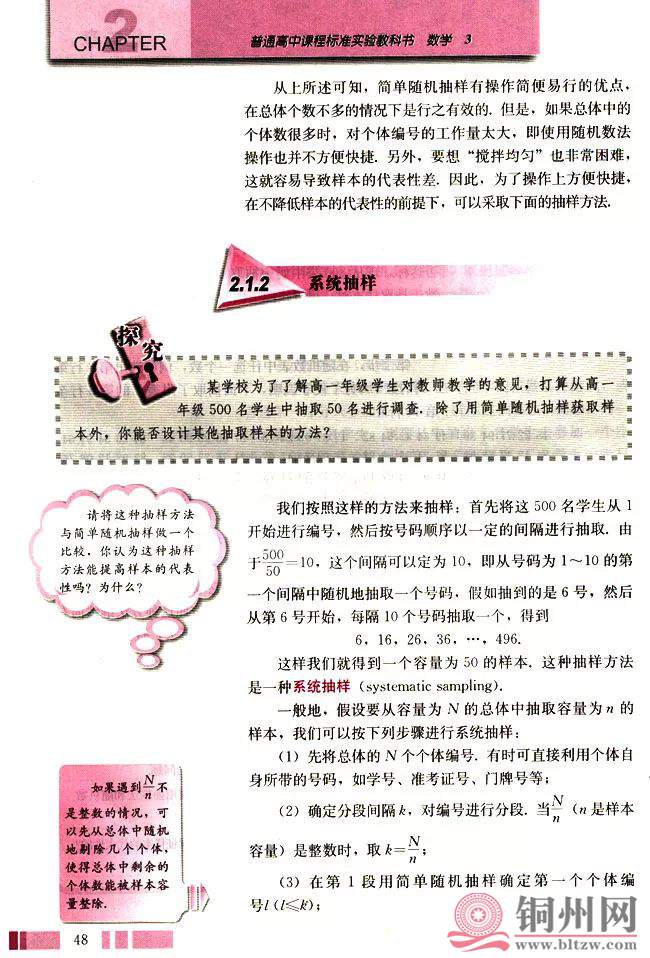 2
CHAPTER
普通高中课程标准实验教科书 数学 3
从上所述可知，简单随机抽样有操作简便易行的优点，
在总体个数不多的情况下是行之有效的. 但是，如果总体中的
个体数很多时，对个体编号的工作量太大，即使用随机数法
操作也并不方便快捷. 另外，要想“搅拌均匀”也非常困难，
这就容易导致样本的代表性差. 因此，为了操作上方便快捷，
在不降低样本的代表性的前提下，可以采取下面的抽样方法.
2.1.2 系统抽样
探究
某学校为了了解高一年级学生对教师教学的意见，打算从高一
年级 500 名学生中抽取 50 名进行调查. 除了用简单随机抽样获取样
本外，你能否设计其他抽取样本的方法？
请将这种抽样方法
与简单随机抽样做一个
比较，你认为这种抽样
方法能提高样本的代表
性吗？为什么？
我们按照这样的方法来抽样：首先将这 500 名学生从 1
开始进行编号，然后按号码顺序以一定的间隔进行抽取. 由
于500/50=10，这个间隔可以定为 10，即从号码为 1～10 的第
一个间隔中随机地抽取一个号码，假如抽到的是 6 号，然后
从第 6 号开始，每隔 10 个号码抽取一个，得到
6，16，26，36，…，496.
这样我们就得到一个容量为 50 的样本. 这种抽样方法
是一种系统抽样（systematic sampling）.
一般地，假设要从容量为 N 的总体中抽取容量为 n 的
样本，我们可以按下列步骤进行系统抽样：
（1）先将总体的 N 个个体编号. 有时可直接利用个体自
身所带的号码，如学号、准考证号、门牌号等；
（2）确定分段间隔 k，对编号进行分段. 当N/n（n 是样本
容量）是整数时，取 k=N/n；
（3）在第 1 段用简单随机抽样确定第一个个体编
号 l (l≤k)；
如果遇到N/n不
是整数的情况，可
以先从总体中随机
地剔除几个个体，
使得总体中剩余的
个体数能被样本容
量整除.
48
铜州网
www.bltzw.com